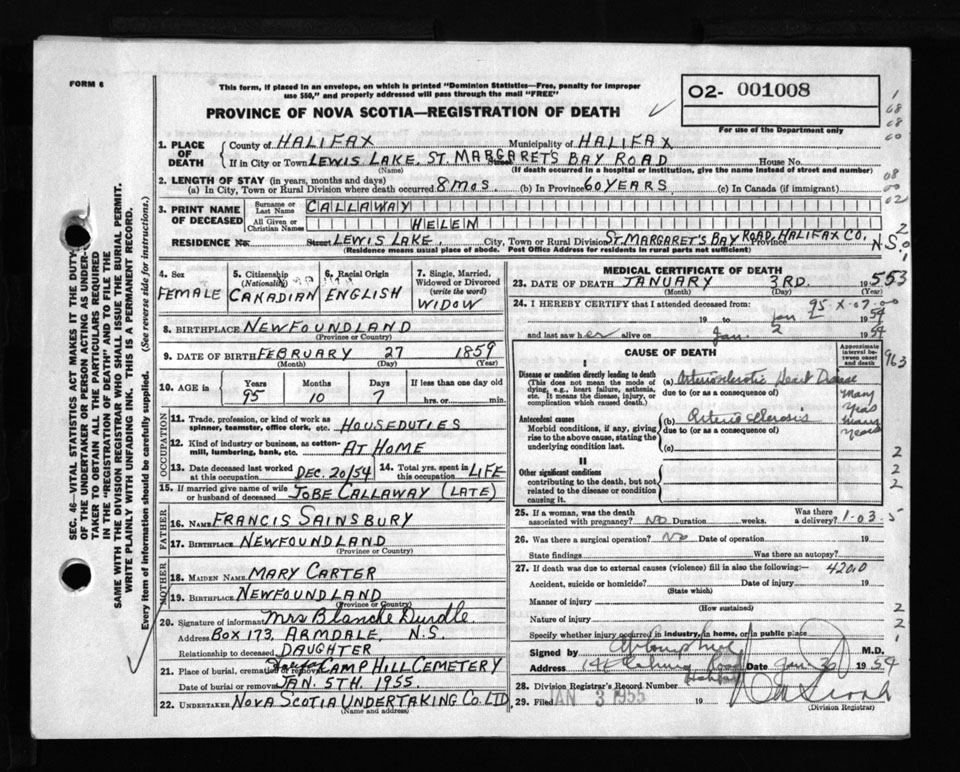 FORM 6
This form, if placed in an envelope, on which is printed "Dominion Statistics—Free, penalty for improper
use $50," and properly addressed will pass through the mail "FREE"
PROVINCE OF NOVA SCOTIA—REGISTRATION OF DEATH
O2- 001008
For use of the Department only
1. PLACE OF DEATH
County of HALIFAX Municipality of HALIFAX
If in City or Town LEWIS LAKE, ST. MARGARETS BAY ROAD House No.
(Name) Street (If death occurred in a hospital or institution, give the name instead of street and number)
2. LENGTH OF STAY (in years, months and days)
(a) In City, Town or Rural Division where death occurred 8 mos. (b) In Province 60 YEARS (c) In Canada (if immigrant)
3. PRINT NAME OF DECEASED
Surname or Last Name CALLAWAY
All Given or Christian Names HELEN
RESIDENCE No. Street LEWIS LAKE, City, Town or Rural Division ST. MARGARET'S BAY ROAD, Province HALIFAX CO, N.S.
(Residence means usual place of abode. Post Office Address for residents in rural parts not sufficient)
4. Sex
FEMALE
5. Citizenship
(Nationality)
CANADIAN
6. Racial Origin
ENGLISH
7. Single, Married,
Widowed or Divorced
(write the word)
WIDOW
8. BIRTHPLACE NEWFOUNDLAND
(Province or Country)
9. DATE OF BIRTH FEBRUARY 27 1859
(Month) (Day) (Year)
10. AGE IN
Years Months Days If less than one day old
95 10 7 hrs. or min.
OCCUPATION
11. Trade, profession, or kind of work as
spinner, teamster, office clerk, etc. HOUSEDUTIES
12. Kind of industry or business, as cotton-
mill, lumbering, bank, etc. AT HOME
13. Date deceased last worked
at this occupation DEC. 20/54 14. Total yrs. spent in
this occupation LIFE
15. If married give name of wife
or husband of deceased JOBE CALLAWAY (LATE)
FATHER
16. NAME FRANCIS SAINSBURY
17. BIRTHPLACE NEWFOUNDLAND
(Province or Country)
MOTHER
18. MAIDEN NAME MARY CARTER
19. BIRTHPLACE NEWFOUNDLAND
(Province or Country)
20. Signature of informant Mrs Blanche Durdle
Address BOX 173, ARMDALE, N.S.
Relationship to deceased DAUGHTER
21. Place of burial, cremation or removal CAMP HILL CEMETERY
Date of burial or removal JAN. 5TH. 1955.
22. UNDERTAKER NOVA SCOTIA UNDERTAKING CO. LTD.
(Name and address)
MEDICAL CERTIFICATE OF DEATH
23. DATE OF DEATH JANUARY 3RD. 1955
(Month) (Day) (Year)
24. I HEREBY CERTIFY that I attended deceased from:
19 to Jan 2 1954
and last saw her alive on Jan. 2 1954
CAUSE OF DEATH
Approximate
interval be-
tween onset
and death
I
Disease or condition directly leading to death
(This does not mean the mode of
dying, e.g., heart failure, asthenia,
etc. It means the disease, injury, or
complication which caused death.)
(a) Arteriosclerotic Heart Disease
due to (or as a consequence of)
Many Years
Antecedent causes
Morbid conditions, if any, giving
rise to the above cause, stating the
underlying condition last.
(b) Arteriosclerosis
due to (or as a consequence of)
many Years
(c)
II
Other significant conditions
contributing to the death, but not
related to the disease or condition
causing it.
25. If a woman, was the death
associated with pregnancy? NO Duration weeks. Was there
a delivery?
26. Was there a surgical operation? No Date of operation 19
State findings Was there an autopsy?
27. If death was due to external causes (violence) fill in also the following:— 420.0
Accident, suicide or homicide? Date of injury 19
(State which)
Manner of injury
(How sustained)
Nature of injury
Specify whether injury occurred in industry, in home, or in public place
Signed by M.D.
Address Road Date Jan 3 1954
Halifax
28. Division Registrar's Record Number
29. Filed JAN 3 1955 19
(Division Registrar)
SEC. 46—VITAL STATISTICS ACT MAKES IT THE DUTY
OF THE UNDERTAKER OR PERSON ACTING AS UNDER-
TAKER TO OBTAIN ALL THE PARTICULARS REQUIRED
IN THE "REGISTRATION OF DEATH" AND TO FILE THE
SAME WITH THE DIVISION REGISTRAR WHO SHALL ISSUE THE BURIAL PERMIT.
WRITE PLAINLY WITH UNFADING INK. THIS IS A PERMANENT RECORD.
Every item of information should be carefully supplied. (See reverse side for instructions.)